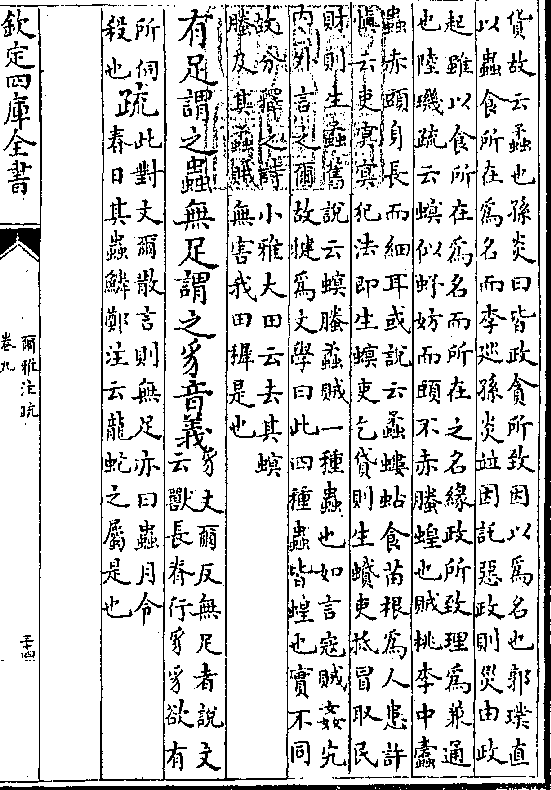 貨故云蟊也孫炎曰皆政貪所致因以為名也郭璞直
以蟲食所在為名而李廵孫炎並因託惡政則災由政
起雖以食所在為名而所在之名緣政所致理為兼通
也陸璣疏云螟似虸蚄而頭不赤螣蝗也賊桃李中蠹
蟲赤頭身長而細耳或說云蟊螻蛄食苗根為人患許
慎云吏冥冥犯法即生螟吏乞貸則生蟘吏抵冒取民
財則生蟊舊說云螟螣蟊賊一種蟲也如言寇賊姦宄
内外言之爾故犍為文學曰此四種蟲皆蝗也實不同
故分釋之詩小雅大田云去其螟
螣及其蟊賊無害我田穉是也
有足謂之蟲無足謂之豸音義豸丈爾反無足者說文
云獸長脊行豸豸欲有
所伺
殺也疏此對文爾散言則無足亦曰蟲月令
春日其蟲鱗鄭注云龍蛇之屬是也
欽定四庫全書
爾雅注疏
卷九
二十四